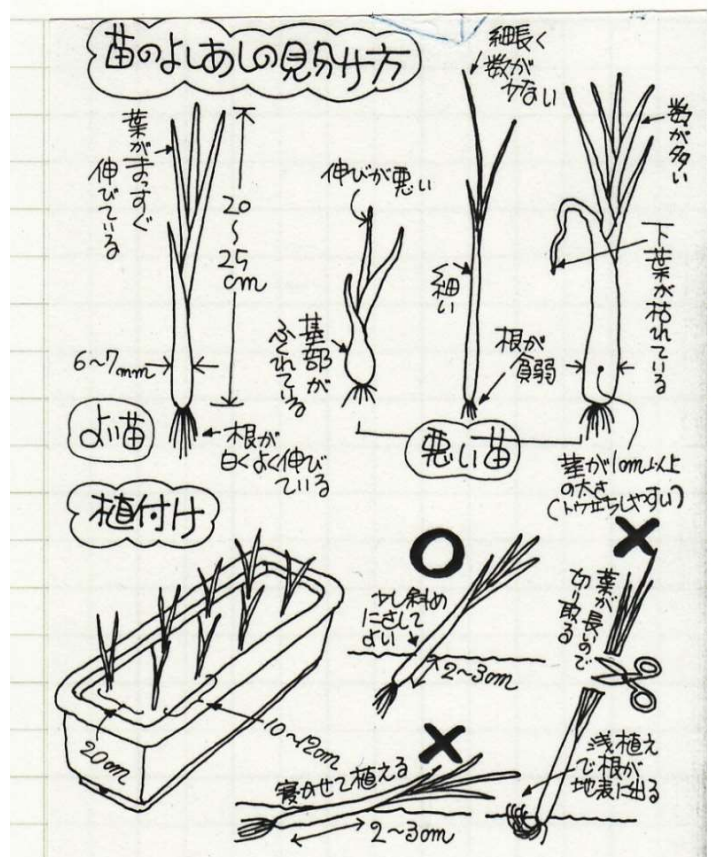 苗のよしあしの見分け方
葉がまっすぐ
伸びている
20
〜
25
cm
6〜7mm
よい苗
根が
白くよく伸び
ている
伸びが悪い
茎部が
ふくれている
細長く
数が
少ない
細い
根が
貧弱
数が多い
下葉が枯れている
悪い苗
茎が1cm以上
の太さ
(トウ立ちしやすい)
植付け
20cm
10〜12cm
少し斜め
にさして
よい
2〜3cm
葉が長いので
切り取る
寝かせて植える
2〜3cm
浅植え
で根が
地表に出る